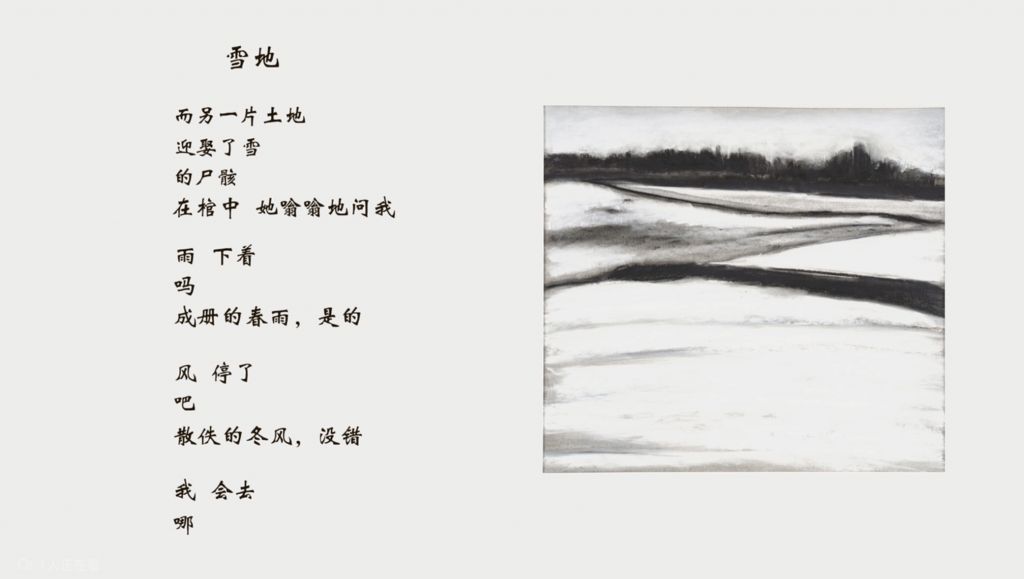 雪地
而另一片土地
迎娶了雪
的尸骸
在棺中 她嗡嗡地问我
雨 下着
吗
成册的春雨，是的
风 停了
吧
散佚的冬风，没错
我 会去
哪
1人正在看